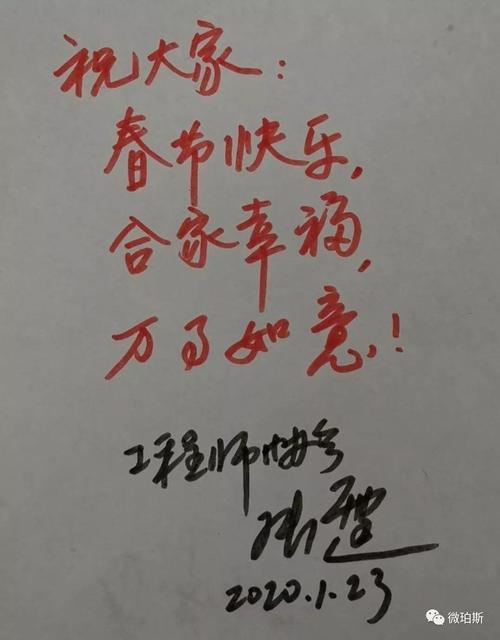 祝大家：
春节快乐，
合家幸福，
万事如意！
工程师协会
2020.1.23
微珀斯